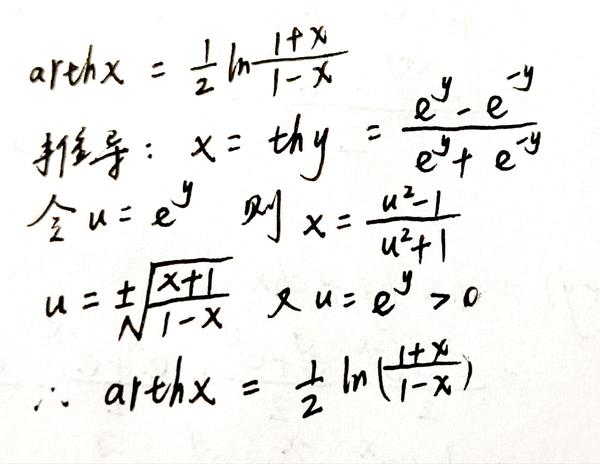 arthx = \frac{1}{2} ln \frac{1+x}{1-x}
推导: x = thy = \frac{e^y - e^{-y}}{e^y + e^{-y}}
令 u = e^y 则 x = \frac{u^2-1}{u^2+1}
u = ±\sqrt{\frac{x+1}{1-x}} 又 u = e^y > 0
∴ arthx = \frac{1}{2} ln(\frac{1+x}{1-x})